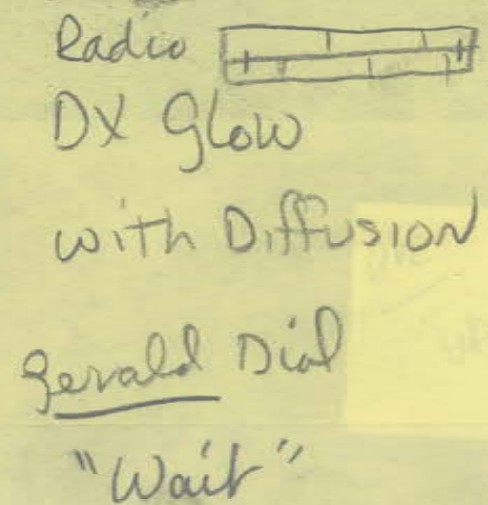 Radio
DX Glow
with Diffusion
Gerald Dial
"Wait"